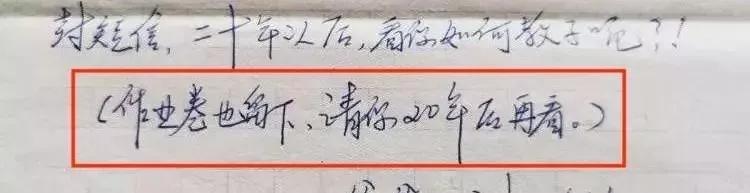 封短信，二十年以后，看你如何教子呢？！
（作业卷也留下、请你20年后再看。）